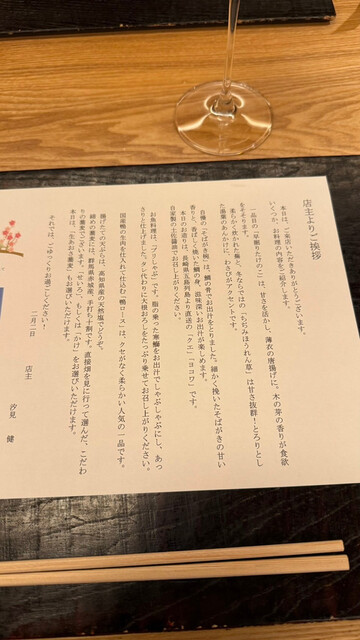 店主よりご挨拶
本日は、ご来店いただきありがとうございます。
いくつか、お料理の内容をご紹介します。
一品目の「早堀りたけのこ」は、甘さを活かし、薄衣の唐揚げに。木の芽の香りが食欲
をそそります。
柔らかく炊かれた蕪と、冬ならではの「ちぢみほうれん草」は甘さ抜群！とろりとし
た湯葉のあんかけに、わさびがアクセントです。
自慢の「そばがき椀」は、鯛の骨でお出汁をとりました。細かく挽いたそばがきの甘い
香りと、香ばしく焼いた鯛の身、滋味深いお出汁が楽しめます。
本日のお造りは、長崎県五島列島より直送の「クエ」「ヨコワ」です。
自家製の土佐醤油でお召し上がりください。
お魚料理は、「ブリしゃぶ」です。脂の乗った寒鰤をお出汁でしゃぶしゃぶにし、あっ
さりと仕上げました。タレ代わりに大根おろしをたっぷり乗せてお召し上がりください。
国産鴨の生肉を仕入れて仕込む「鴨ロース」はクセがなく柔らかい人気の一品です。
揚げたての天ぷらは、高知県産の天然塩でどうぞ。
締めの蕎麦には、群馬県赤城産、手打ち十割です。直接畑を見に行って選んだ、こだわ
りの蕎麦でございます。「せいろ」、もしくは「かけ」をお選びいただけます。
本日は、「生あおさ蕎麦」もお選びいただけます。
それでは、ごゆっくりお過ごしください！
二月二日
店主　汐見　健